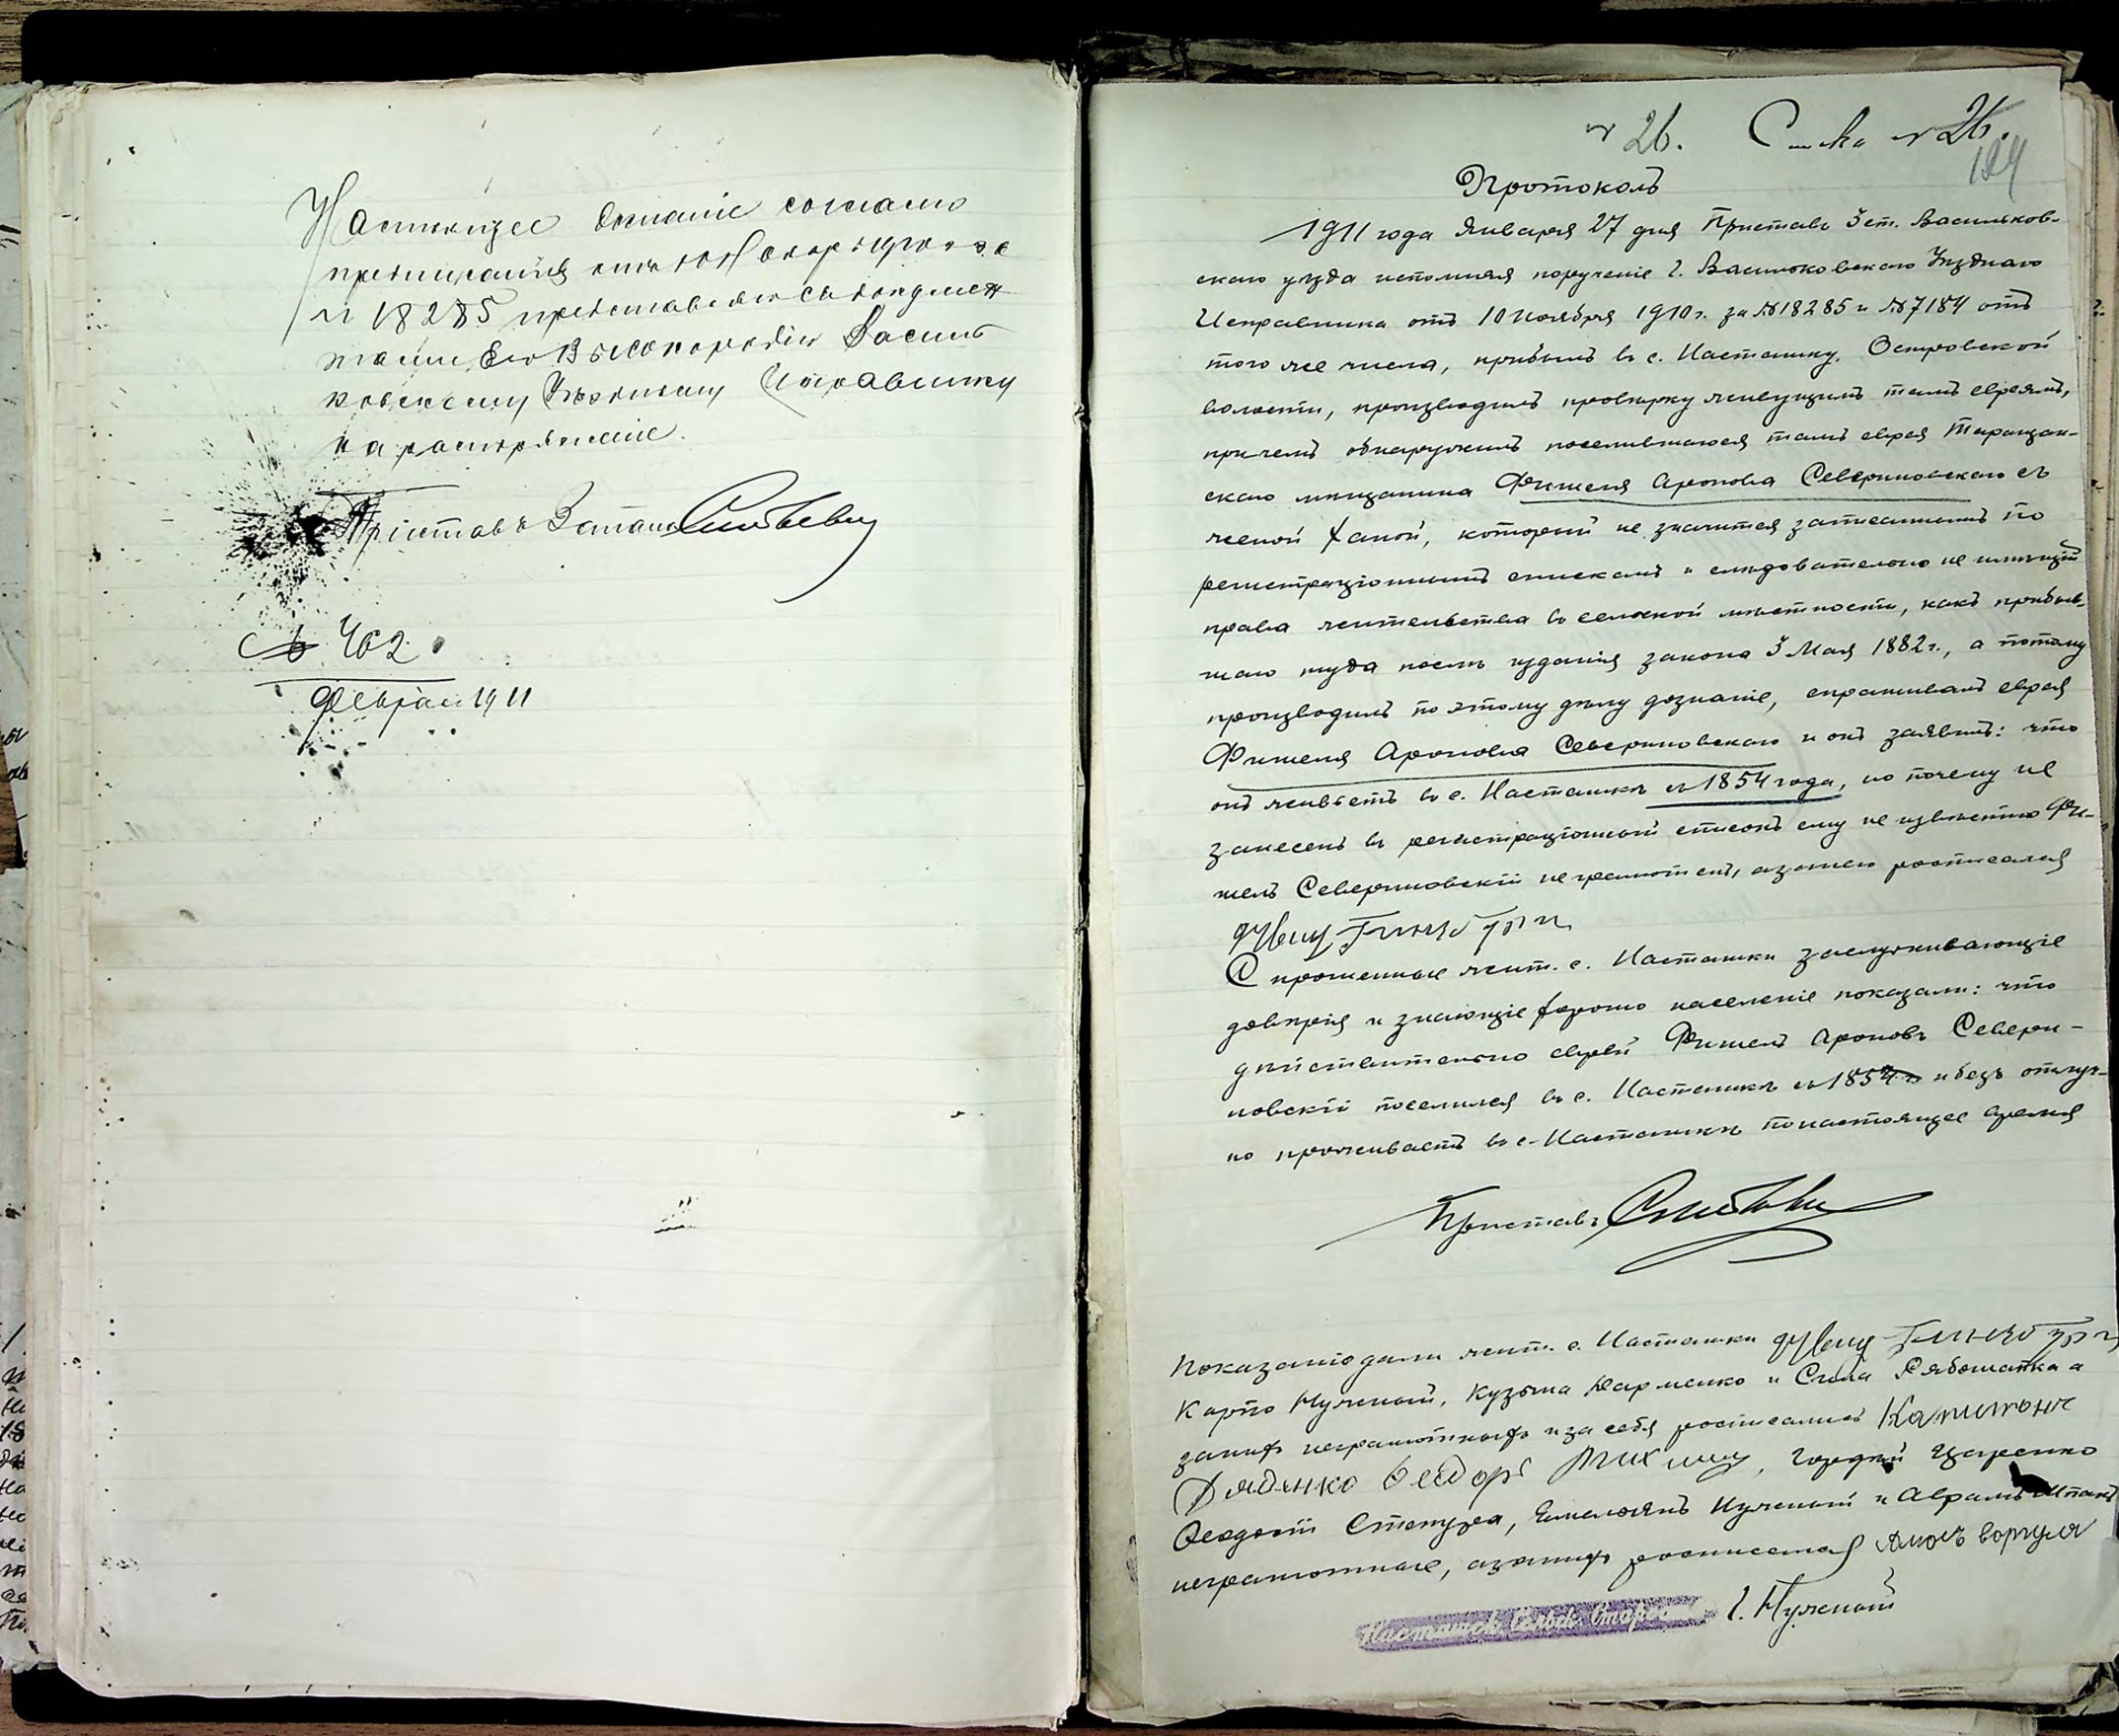 Настоящее дознаніе согласно
предписанія отъ 10 Ноября 1910 г. за
№ 18285 представляю съ документ
тами Его Высокородію Василь
ковскому Уѣздному Исправнику
на распоряженіе.
Приставъ 3 стана
№ 462
Февраля 1911
№ 26. № 26.
124
Протоколъ
1911 года Января 27 дня Приставъ 3 ст. Васильков-
скаго уѣзда исполняя порученіе г. Васильковскаго Уѣзднаго
Исправника отъ 10 Ноября 1910 г. за №18285 и №7184 отъ
того же числа, прибылъ въ с. Насташку, Островской
волости, производилъ провѣрку живущимъ тамъ евреямъ,
при чемъ обнаружилъ поселившагося тамъ еврея Таращан-
скаго мѣщанина Фишеля Аронова Севериновскаго съ
женой Ханой, который не значится записаннымъ по
регистраціоннымъ спискамъ и слѣдовательно не имѣющій
права жительства въ сельской мѣстности, какъ прибыв-
шаго туда послѣ изданія закона 3 Мая 1882 г., а потому
производилъ по этому дѣлу дознаніе, спрашивалъ еврея
Фишеля Аронова Севериновскаго и онъ заявилъ: что
онъ живетъ въ с. Насташкѣ съ 1854 года, но почему не
занесенъ въ регистраціонный списокъ ему не извѣстно Фи-
шель Севериновскій неграмотенъ, а за него росписался
Спрошенные жит. с. Насташки заслуживающіе
довѣрія и знающіе хорошо населеніе показали: что
дѣйствительно еврей Фишель Ароновъ Севери-
новскій поселился въ с. Насташкѣ съ 1854 г. и безъ отлуч-
но проживаетъ въ с. Насташкѣ по настоящее время
Приставъ
Показаніе дали жит. с. Насташки
Карпо Нужный, Кузьма Карпенко и Сава Рябошапка а
за нихъ неграмотныхъ и за себя росписались Капитонъ
Дяденко Федоръ
Феодосій Степура, Емельянъ Нужный и Абрамъ Шпакъ
неграмотные, а за нихъ росписался
Насташск. Сельск. Старос Г. Нужный